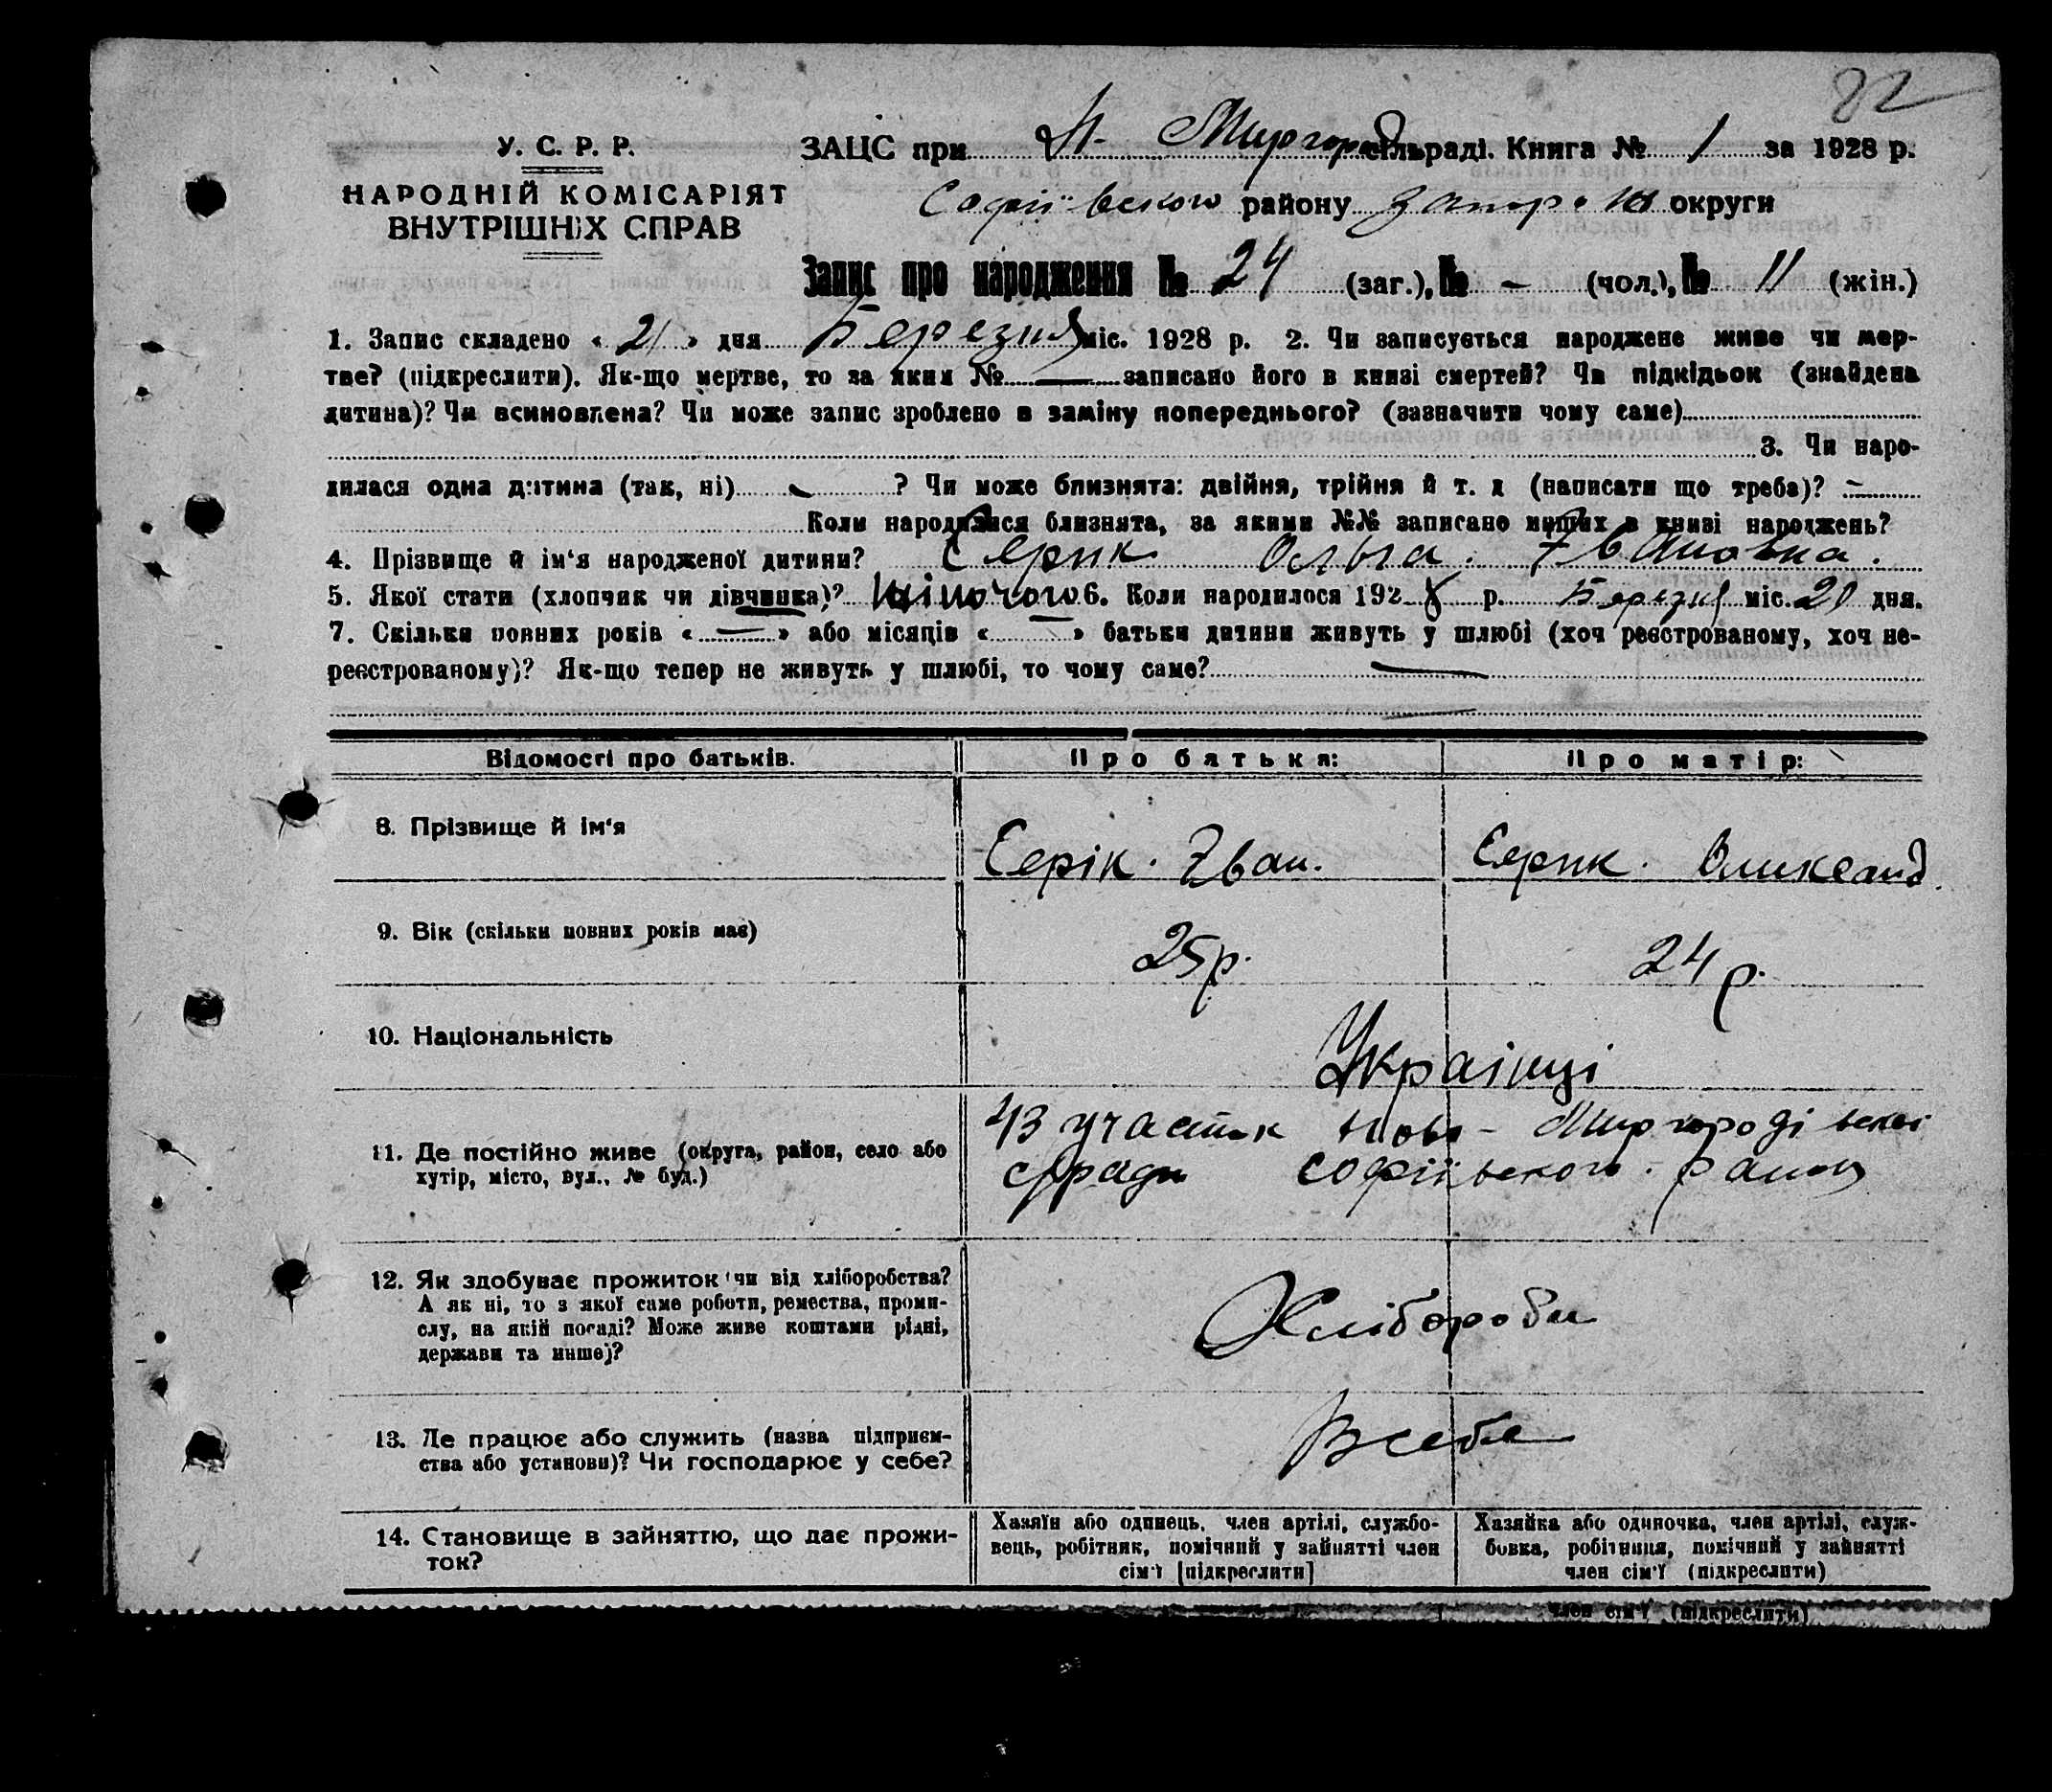 82
У. С. Р. Р.
НАРОДНІЙ КОМІСАРІЯТ
ВНУТРІШНІХ СПРАВ
ЗАЦС при Н. Миргород сільраді. Книга № 1 за 1928 р.
Софіївського району Запоріз округи
Запис про народження № 24 (заг.), № - (чол.), № 11 (жін.)
1. Запис складено « 21 » дня Березня міс. 1928 р. 2. Чи записується народжене живе чи мер-
тве? (підкреслити). Як-що мертве, то за яким № — записано його в книзі смертей? Чи підкідьок (знайдена
дитина)? Чи всиновлена? Чи може запис зроблено в заміну попереднього? (зазначити чому саме)
3. Чи наро-
дилася одна дитина (так, ні) - ? Чи може близнята: двійня, трійня й т. д (написати що треба)? -
Коли народилися близнята, за якими №№ записано инших в книзі народжень?
4. Прізвище й ім‘я народженої дитини? Серик Ольга. Івановна.
5. Якої стати (хлопчик чи дівчинка)? жіночого 6. Коли народилося 1928 р. Березня міс. 20 дня.
7. Скільки повних років « — » або місяців « — » батьки дитини живуть у шлюбі (хоч реєстрованому, хоч не-
реєстрованому)? Як-що тепер не живуть у шлюбі, то чому саме? —
Відомості про батьків. Про батька: Про матір:
8. Прізвище й ім‘я Серік. Іван. Серик. Олександ.
9. Вік (скільки повних років має) 25 р. 24 р.
10. Національність Українці
11. Де постійно живе (округа, район, село або
хутір, місто, вул., № буд.)
43 участок Ново-Миргородівської
с/ради Софіївського району
12. Як здобуває прожиток чи від хліборобства?
А як ні, то з якої саме роботи, ремества, проми-
слу, на якій посаді? Може живе коштами рідні,
держави та иншої?
Хлібороби
13. Де працює або служить (назва підприєм-
ства або установи)? Чи господарює у себе?
В себе
14. Становище в зайняттю, що дає прожи-
ток?
Хазяїн або одинець, член артілі, службо-
вець, робітник, помічний у зайнятті член
сім‘ї [підкреслити]
Хазяйка або одиночка, член артілі, служ-
бовка, робітниця, помічний у зайнятті
член сім‘ї (підкреслити)
член сім‘ї (підкреслити)